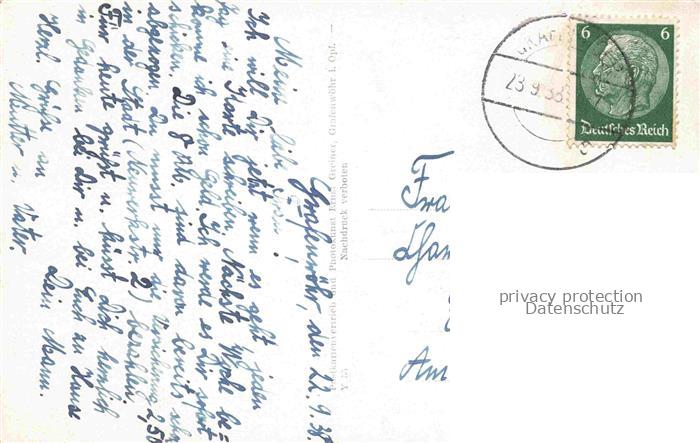 Grafenwöhr, den 22.9.38
Meine liebe !
Ich will Dir jetzt wenn es geht jeden
Tag eine Karte schreiben. Nächste Woche be=
komme ich schon Geld. Ich werde es Dir sofort
schicken. Die 8 RM. sind davon bereits schon
abgezogen. Du musst nur die Versicherung 2,50
in der Stadt ( 2) bezahlen.
Für heute grüßt u. küsst Dich herzlich
in Gedanken bei Dir u. bei Euch zu Hause
Dein Mann.
Herzl. Grüße an
Mutter u. Vater.
Postkartenvertrieb und Photokunst Ernst Greiner, Grafenwöhr i. Opf.
Nachdruck verboten
Y 55
23.9.38
6 6
Deutsches Reich
Fra
Cham
Am
privacy protection
Datenschutz